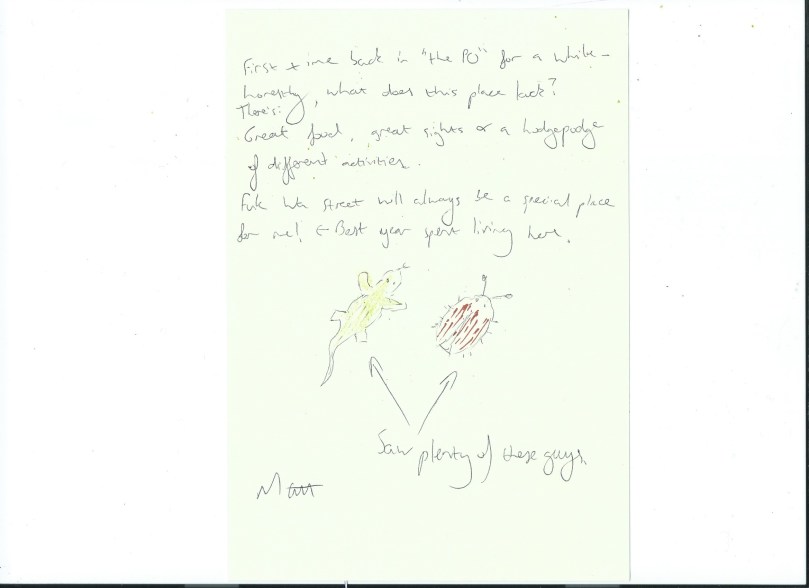 First time back in "the PO" for a while -
honestly, what does this place lack?
There's:
Great food, great sights or a hodgepodge
of different activities.
Fuk Wa street will always be a special place
for me! ← Best year spent living here.
Saw plenty of these guys.
Matt